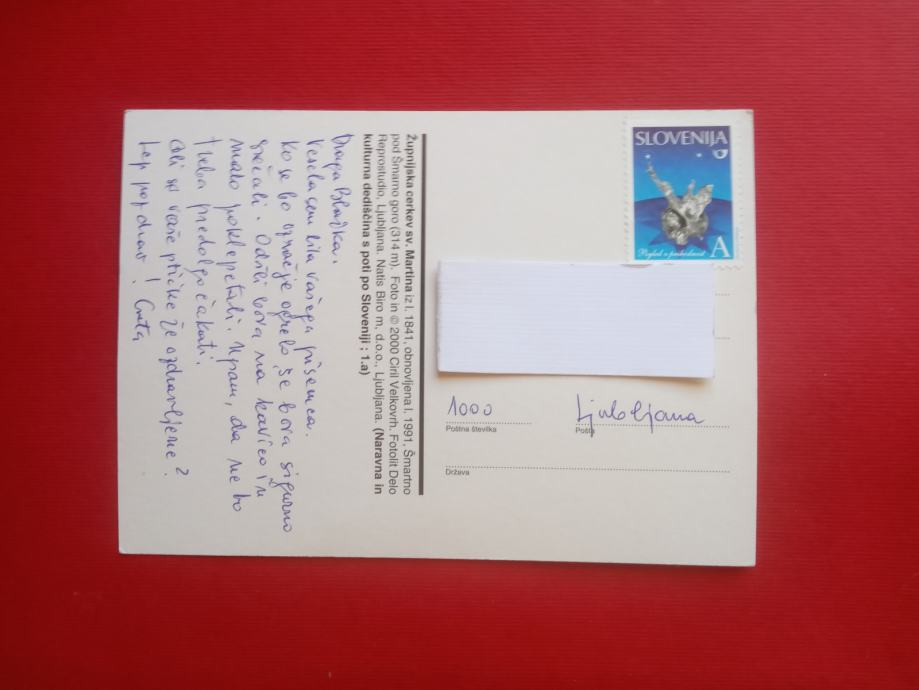 Župnijska cerkev sv. Martina iz l. 1841, obnovljena l. 1991, Šmartno
pod Šmarno goro (314 m). Foto in © 2000 Ciril Velkovrh. Fotolit Delo
Reprostudio, Ljubljana. Natis Biro m, d.o.o., Ljubljana. (Naravna in
kulturna dediščina s poti po Sloveniji ; 1.a)
Draga Blažka.
Vesela sem bila vašega pisemca.
Ko se bo ozračje ogrelo, še bova sigurno
srečali. Odšli bova na kavico in
malo poklepetali. Upam, da ne bo
treba predolgo čakati.
Ali so vaše ptičke že ozdravljene?
Lep pozdrav! Greta
SLOVENIJA
A
Pogled v prihodnost
1000
Ljubljana
Poštna številka
Pošta
Država